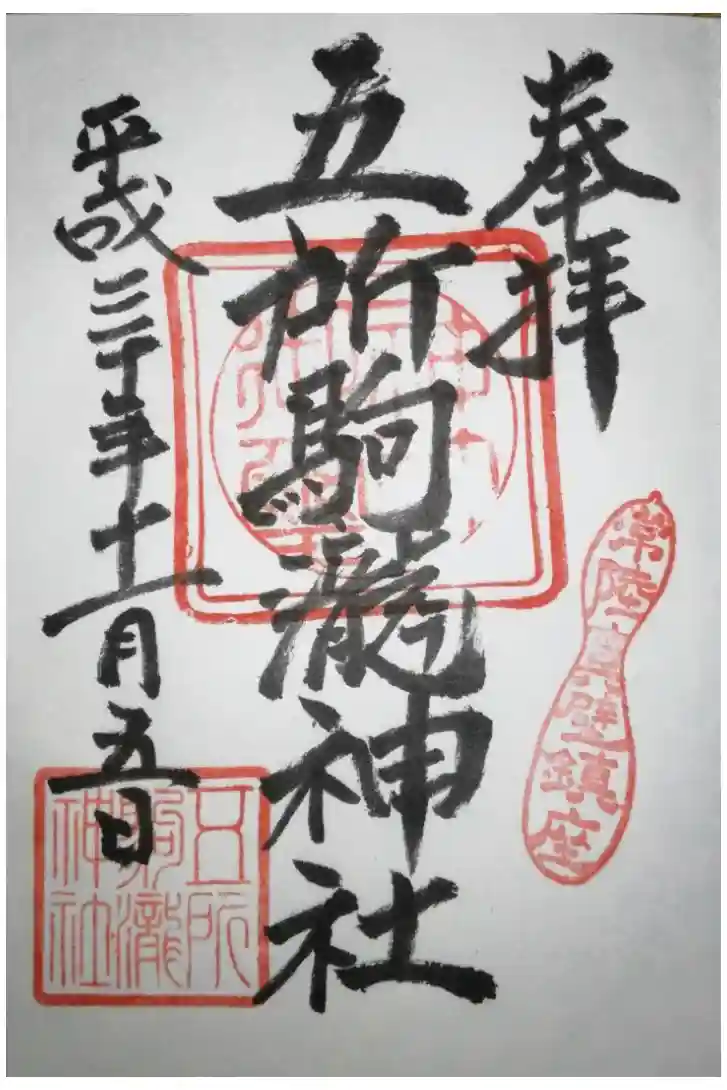 奉拝
常陸真壁鎮座
五所駒瀧神社
平成三十年十一月五日
五所
駒瀧
神社